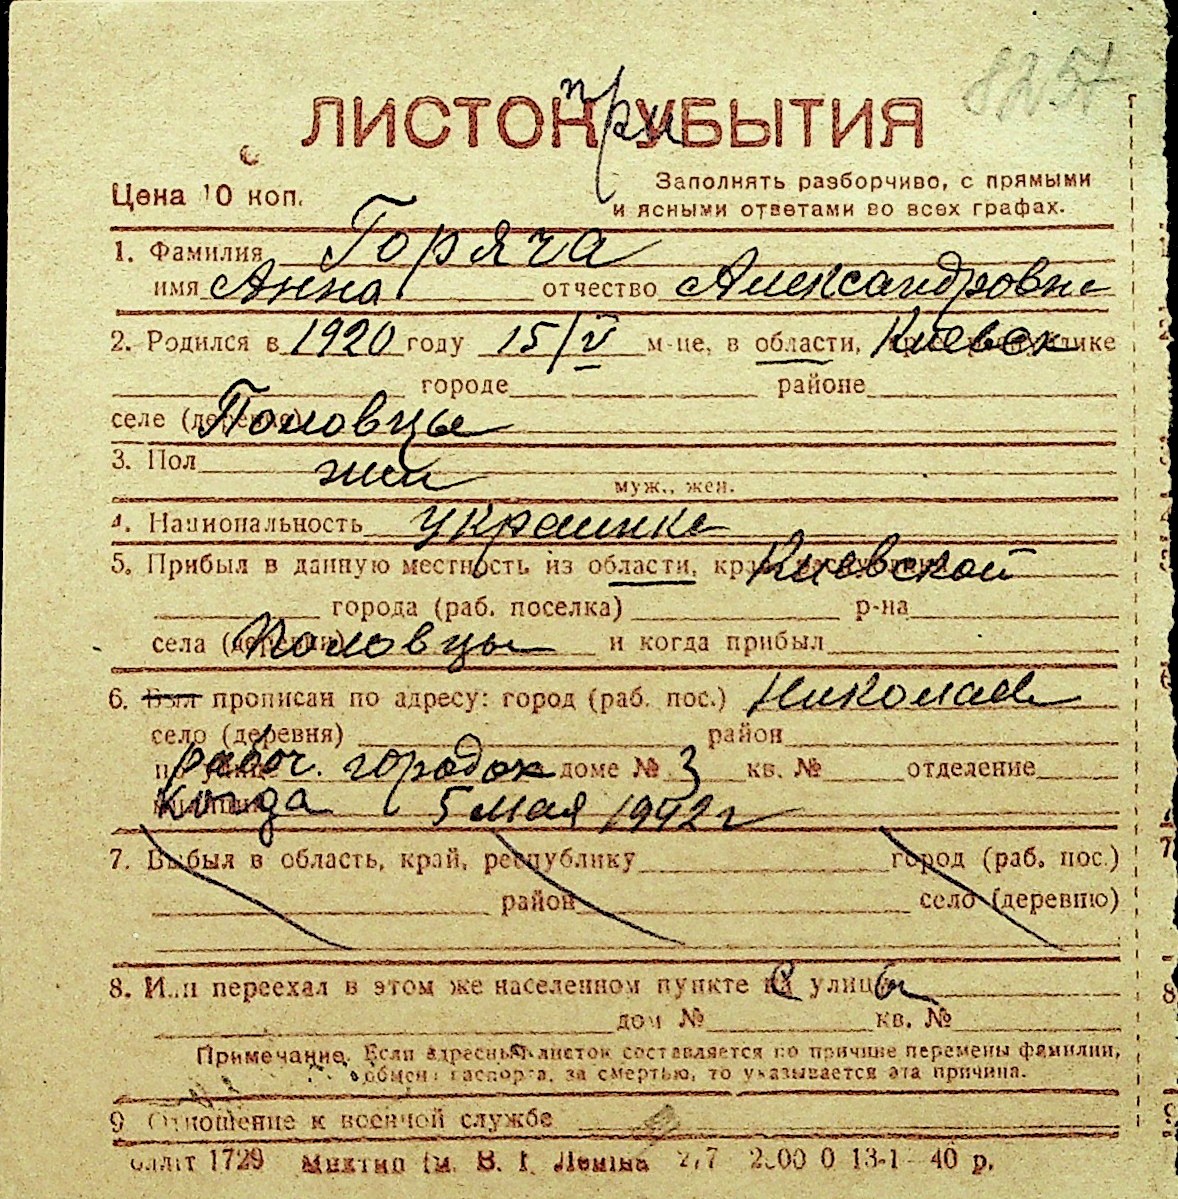 8257
ЛИСТОК при УБЫТИЯ
Цена 10 коп.
Заполнять разборчиво, с прямыми
и ясными ответами во всех графах.
1. Фамилия Горяча
имя Анна отчество Александровна
2. Родился в 1920 году 15/V м-це, в области, Киевск
городе районе
селе (деревне) Половцы
3. Пол жен
муж., жен.
4. Национальность украинка
5. Прибыл в данную местность из области, Киевской
города (раб. поселка) р-на
села (деревни) Половцы и когда прибыл
6. Был прописан по адресу: город (раб. пос.) Николаев
село (деревня) район
рабоч. городок доме № 3 кв. № отделение
когда 5 мая 1942 г
7. Выбыл в область, край, республику город (раб. пос.)
район село (деревню)
8. Или переехал в этом же населенном пункте с улицы
дом № кв. №
Примечание. Если адресный листок составляется по причине перемены фамилии,
обмена паспорта, за смертью, то указывается эта причина.
9 Отношение к военной службе
1729 им. В. И. Ленина 13-1 40 р.